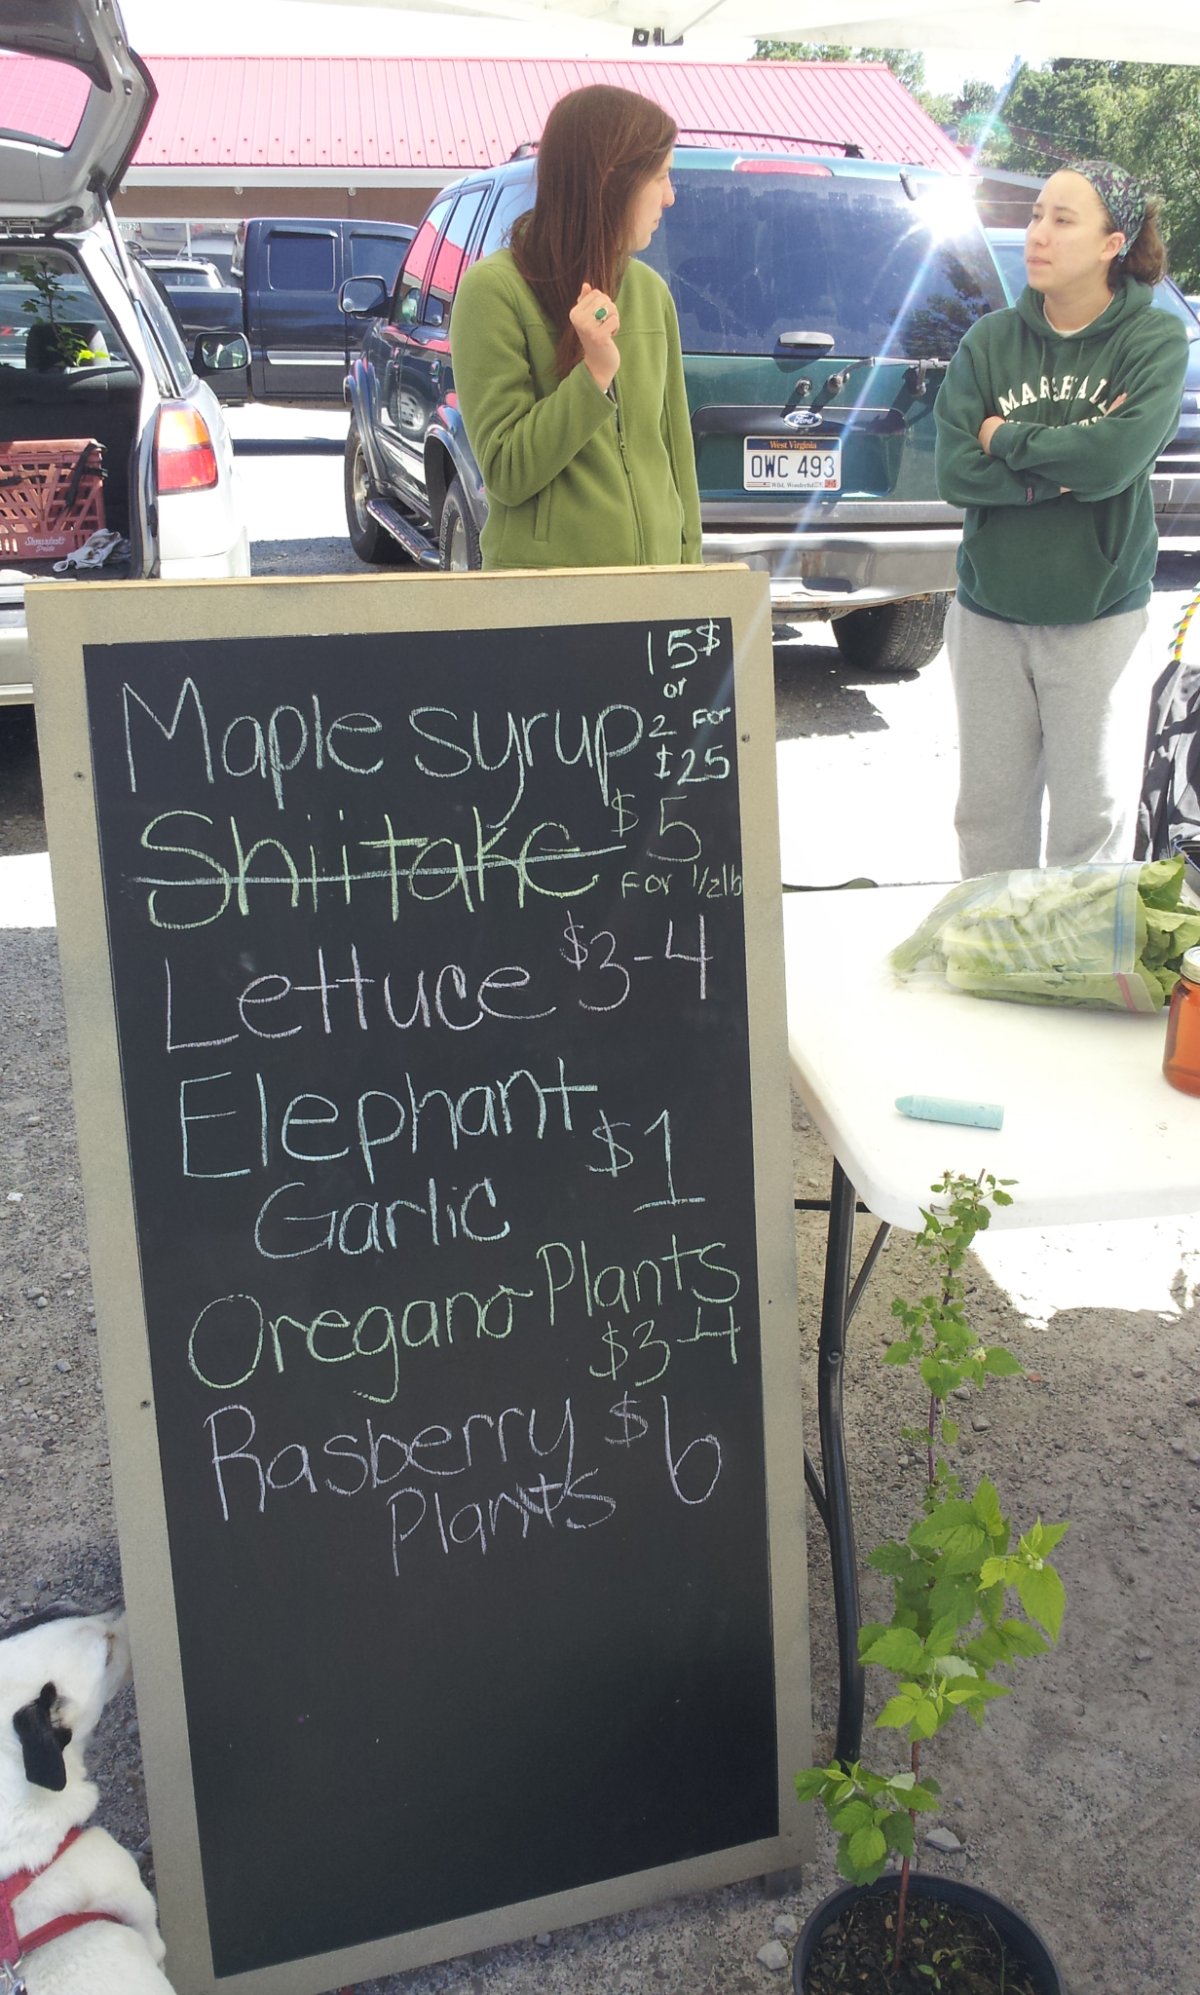 West Virginia
Ford
OWC 493
Wild, Wonderful
MARSHALL
15$
or
Maple syrup 2 For
$25
Shiitake $5
For 1/2 lb
Lettuce $3-4
Elephant
Garlic $1
Oregano Plants
$3-4
Rasberry $6
Plants